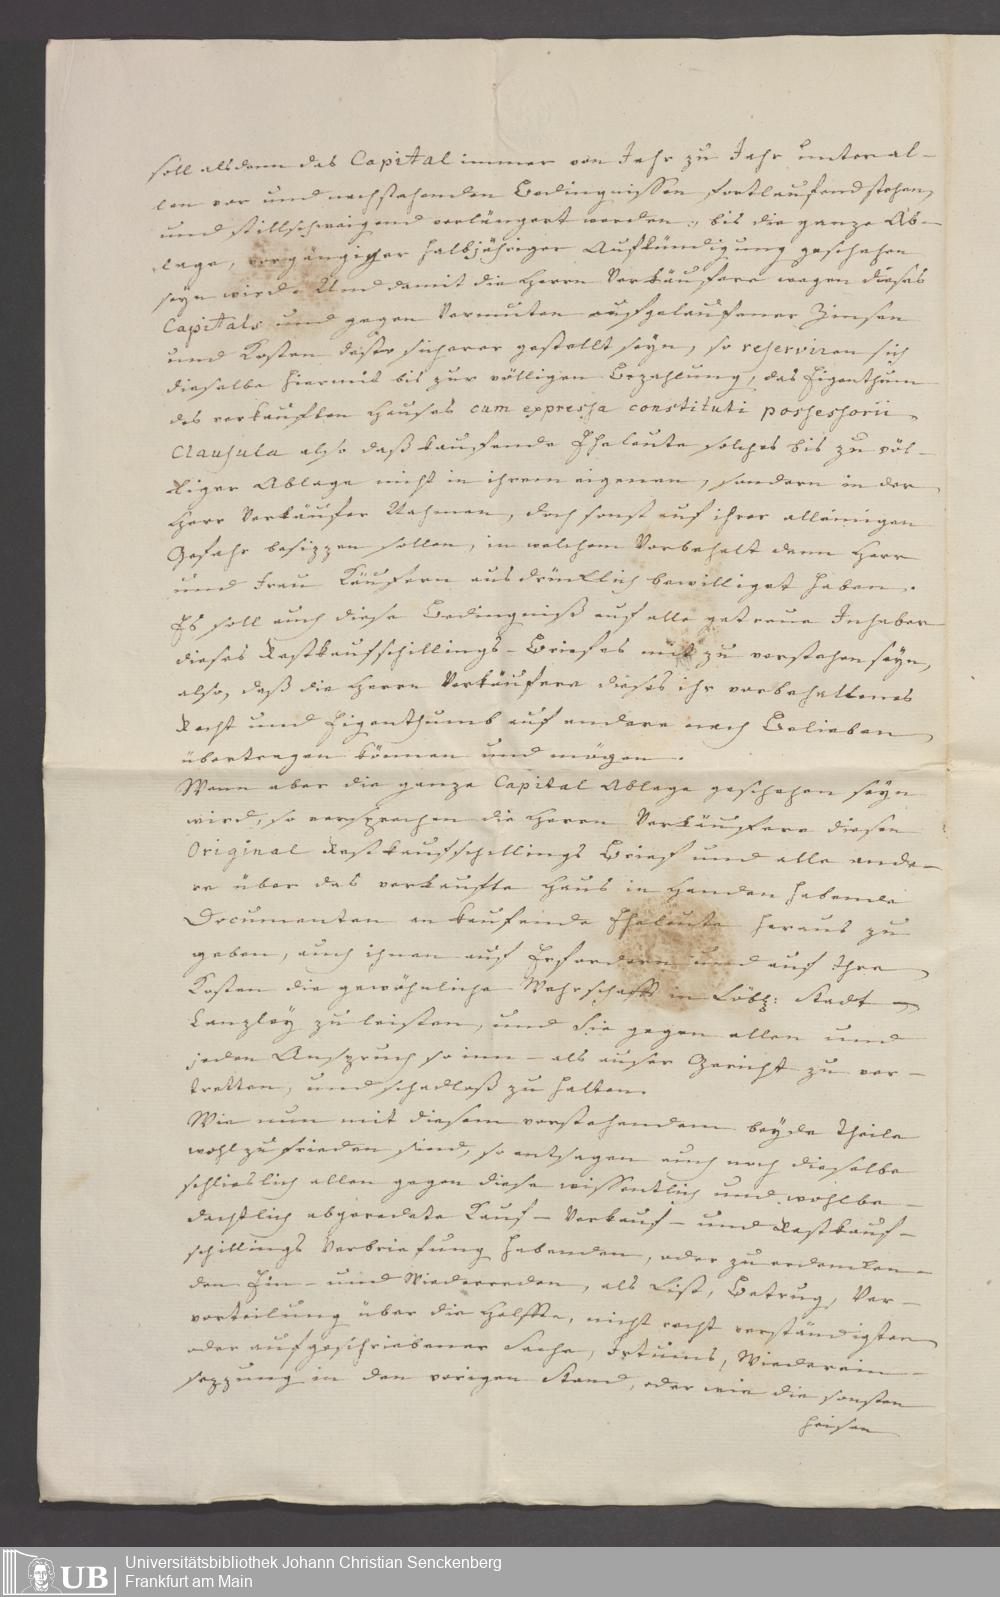 soll alsdenn das Capital immer von Jahr zu Jahr unter al-
len vor und nachstehenden Bedingnissen fortlaufend stehen,
und stillschweigend verlängert werden, bis die ganze Ab-
lage, vorgängiger halbjähriger Aufkündigung geschehen
seyn wird. Und damit die Herrn Verkäufere wegen dieses
Capitals und gegen Vermuten aufgelaufener Zinsen
und Kosten desto sicherer gestellt seyn, so reserviren sich
dieselbe hiermit bis zur völligen Bezahlung, das Eigenthum
des verkauften Hauses cum expressa constituti possessorii
Clausula also daß kaufende Eheleute solches bis zu völ-
liger Ablage nicht in ihrem eigenen, sondern in der
Herr Verkäufer Nahmen, doch sonst auf ihrer alleinigen
Gefahr besizzen sollen, in welchem Vorbehalt denn Herr
und Frau Käufern ausdrücklich bewilliget haben.
Es soll auch diese Bedingniß auf alle getreue Inhaber
dieses Restkaufschillings-Briefes mit zu verstehen seyn,
also, daß die Herrn Verkäufere dieses ihr vorbehaltenes
Recht und Eigenthumb auf andere nach Belieben
übertragen können und mögen.
Wenn aber die ganze Capital Ablage geschehen seyn
wird, so versprechen die Herrn Verkäufere diesen
Original Restkaufschillings Brief und alle ande-
re über das verkaufte Haus in Handen habende
Documenten an kaufende Eheleute heraus zu
geben, auch ihnen auf Erfordern und auf Ihre
Kosten die gewöhnliche Wehrschafft in Löbl: Stadt-
Canzley zu leisten, und Sie gegen allen und
jeden Anspruch so inn- als auser Gericht zu ver-
tretten, und schadloß zu halten.
Wie nun mit diesem vorstehendem beyde Theile
wohl zufrieden sind, so entsagen auch noch dieselbe
schlieslich allen gegen diese wissentlich und wohlbe-
dachtlich abgeredete Kauf- Verkauf- und Restkauf-
schillings Verbriefung habenden, oder zu erdenken-
den Ein- und Wiederreden, als List, Betrug, Ver-
vorteilung über die Helffte, nicht recht verständigter
oder aufgeschriebener Sache, Irtums, Wiederein-
sezzung in den vorigen Stand, oder wie die sonsten
heisen
UB Universitätsbibliothek Johann Christian Senckenberg
Frankfurt am Main